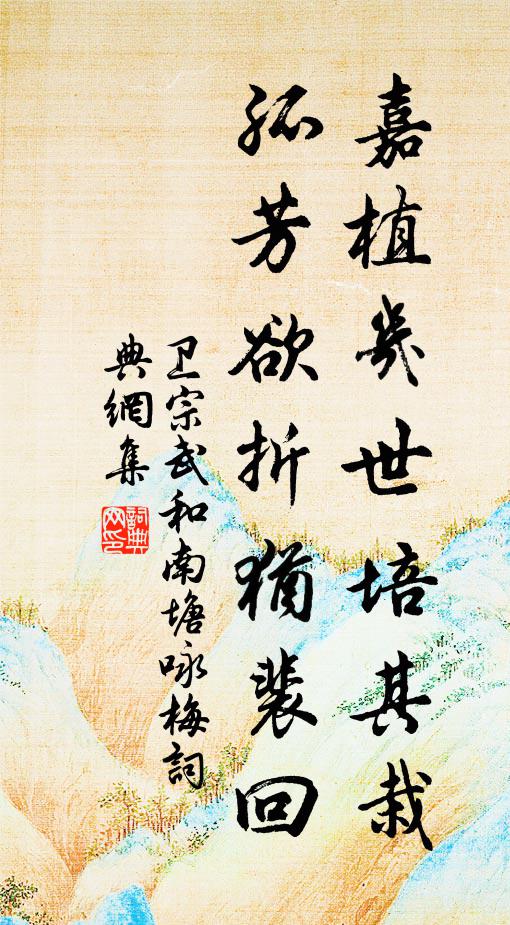 嘉植几世培其栽
孤芳欲折犹裴回
卫宗武和南塘咏梅词
典網集
詞典网印